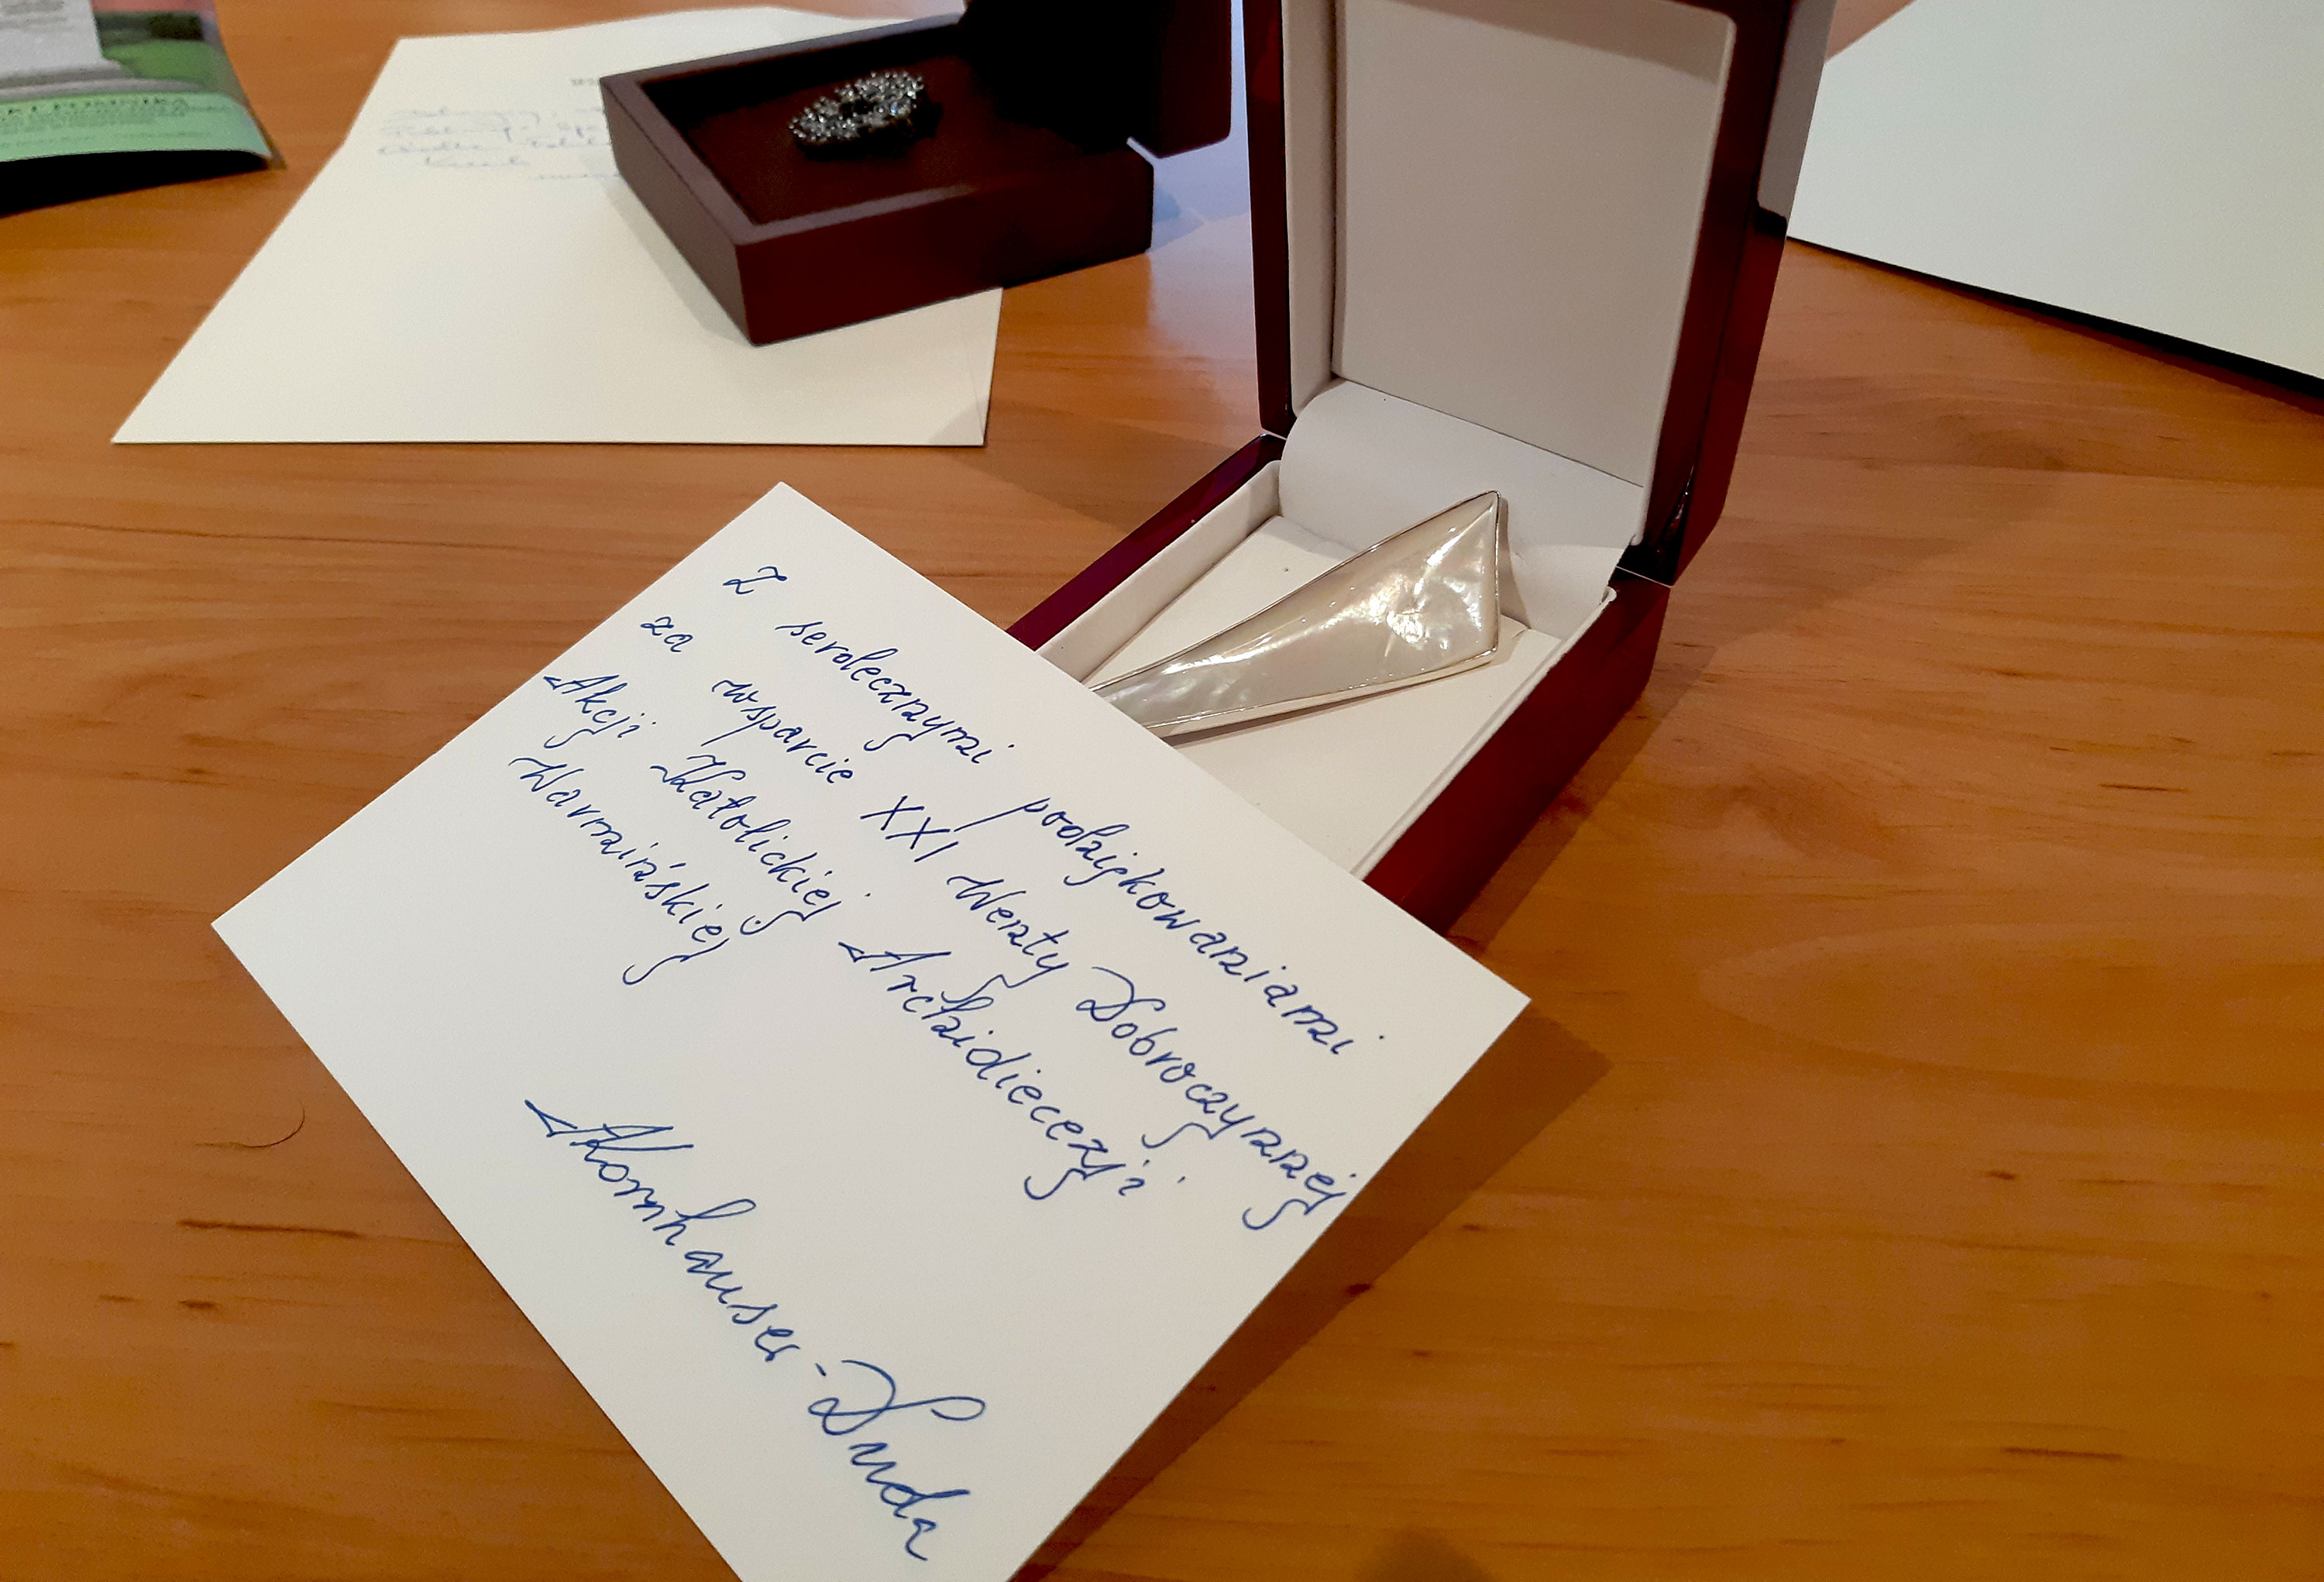 Z serdecznymi podziękowaniami
za wsparcie XXI Wenty Dobroczynnej
Akcji Katolickiej Archidiecezji
Warmińskiej
AKornhauser-Duda